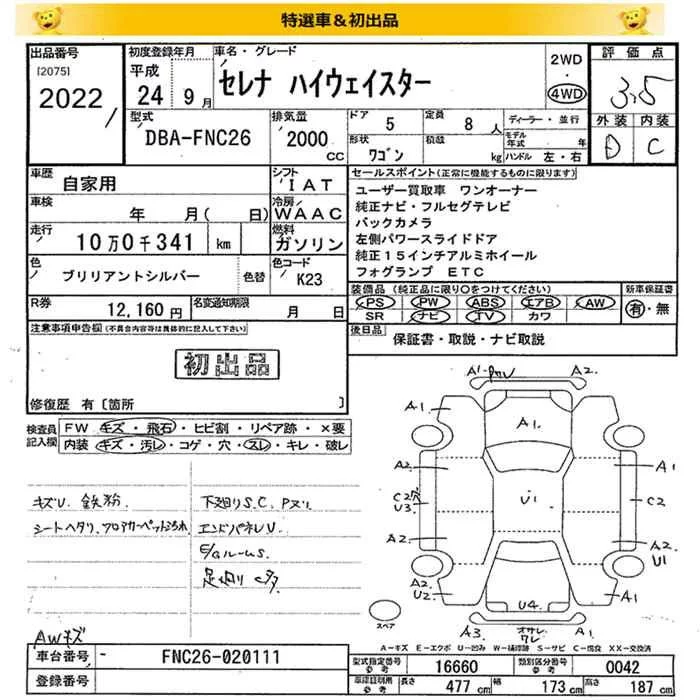 特選車＆初出品
出品番号 初度登録年月 車名・グレード 2WD 評価点
[2075] 平成 セレナ ハイウェイスター ・ 3.5
2022 24 9月 4WD
型式 排気量 ドア 5 定員 8人 ディーラー・並行 外装 内装
DBA-FNC26 2000 CC 形状 ワゴン 積載 kg モデル年式 年 D C
ハンドル 左・右
車歴 自家用 シフト IAT セールスポイント(正常に機能するものに限ります)
車検 年 月( 日) 冷房 WAAC ユーザー買取車 ワンオーナー
純正ナビ・フルセグテレビ
走行 10万0千341 km 燃料 ガソリン バックカメラ
左側パワースライドドア
色 ブリリアントシルバー 色替 色コード K23 純正15インチアルミホイール
フォグランプ ETC
R券 12,160円 名変通知期限 月 日 装備品 (純正品に限り○をつけてください) 新車保証書
PS PW ABS エアB AW 有・無
SR ナビ TV カワ
注意事項申告欄(不具合内容等は具体的に記入して下さい) 後日品 保証書・取説・ナビ取説
初出品
修復歴 有〔箇所 〕
検査員記入欄 FW キズ・飛石・ヒビ割・リペア跡・×要
内装 キズ・汚レ・コゲ・穴・スレ・キレ・破レ
キズU. 鉄粉. 下廻りS.C. Pヌリ.
シートヘタリ. フロアカーペット汚れ エンドパネルU.
E/GルームS.
足廻り
AWキズ
A1 A2.
A1. A1. A1
A2. A1
C2 U3. U1 C2
A2. A2.
A2. U2. U1
U4. A1
スペア A3 A1.
A-キズ E-エクボ U-凹み W-補修跡 S-サビ C-腐食 XX-交換済
車台番号 - FNC26-020111 型式指定番号 参考 16660 類別区分番号 参考 0042
登録番号 車庫証明用 参考 長さ 477 cm 幅 173 cm 高さ 187 cm